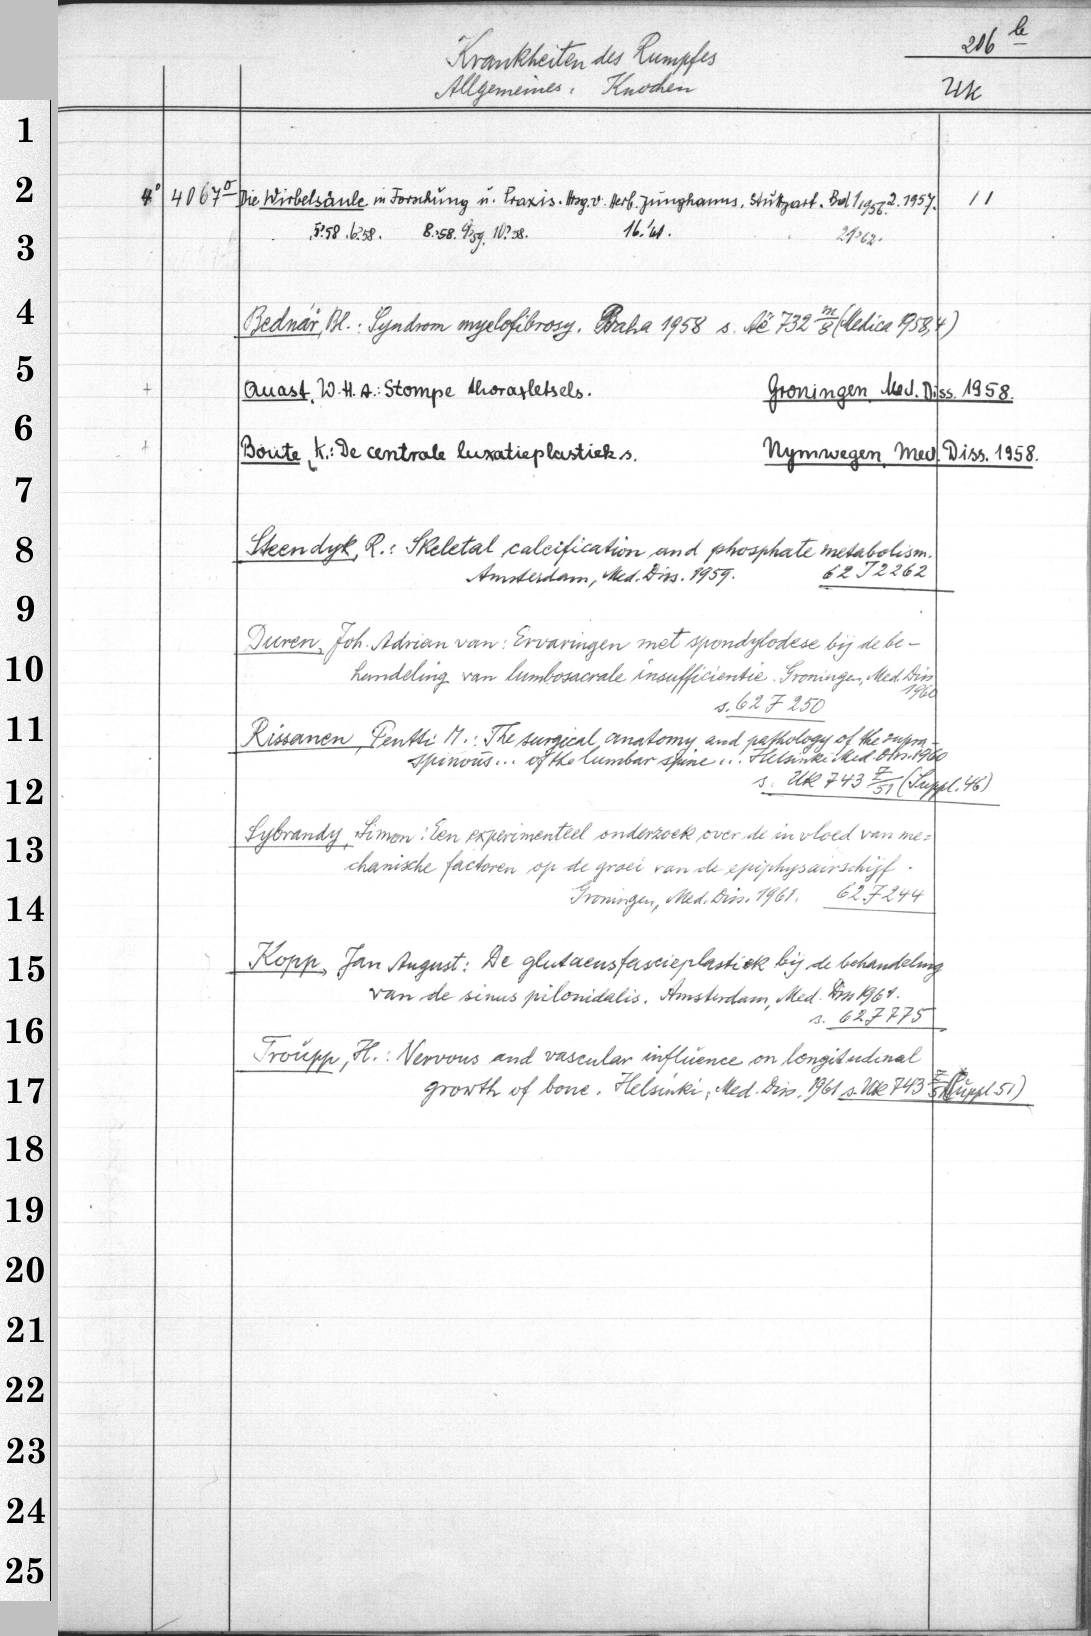 206 b
Krankheiten des Rumpfes
Allgemeines, Knochen
Uk
1
2
4° 4067 Die Wirbelsäule in Forschung u. Praxis. Hrsg. v. Herb. Junghanns, Stuttgart. Bd 1, 1956. 2. 1957. 11
3
5.58. 6.58. 8.58. 9.59. 10.58. 16.'61. 21.62.
4
Bednář, Bl.: Syndrom myelofibrosy. Praha 1958 s. Aë 732 m/8 (Medica 1958,4)
5
+ Quast, W.H.A.: Stompe thoraxletsels. Groningen, Med. Diss. 1958.
6
+ Boute, K.: De centrale luxatieplastieks. Nymwegen, Med. Diss. 1958.
7
8
Steendyk, R.: Skeletal calcification and phosphate metabolism.
Amsterdam, Med. Diss. 1959. 62 J 2262
9
Duren, Joh. Adrian van: Ervaringen met spondylodese bij de be-
10
handeling van lumbosacrale insufficientie. Groningen, Med. Diss
1960
s. 62 J 250
11
Rissanen, Pentti M.: The surgical anatomy and pathology of the supra-
spinous... of the lumbar spine... Helsinki Med. Diss. 1960
12
s. Uk 743 Z/51 (Suppl. 46)
Sybrandy, Simon: Een experimenteel onderzoek over de invloed van me=
13
chanische factoren op de groei van de epiphysairschijf.
14
Groningen, Med. Diss. 1961. 62 J 244
15
Kopp, Jan August: De glutaeusfascieplastiek bij de behandeling
van de sinus pilonidalis. Amsterdam, Med. Diss 1961.
16
s. 62 J 775
Troupp, H.: Nervous and vascular influence on longitudinal
17
growth of bone. Helsinki, Med. Diss. 1961 s. Uk 743 Z/51 (Suppl. 51)
18
19
20
21
22
23
24
25